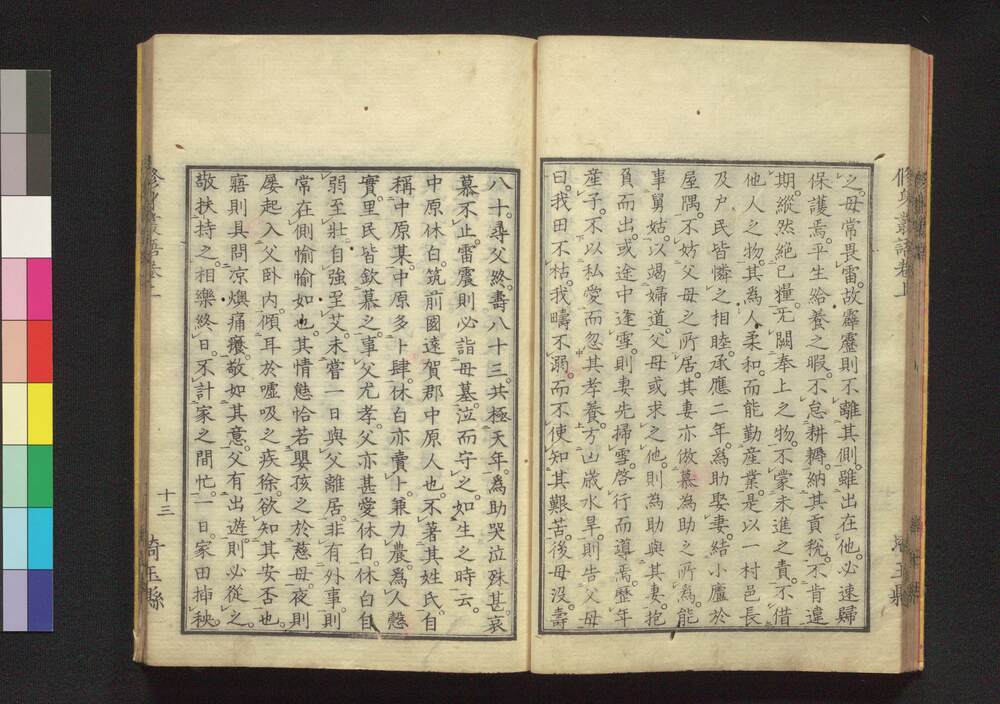 之。母常畏雷。故霹靂則不離其側。雖出在他。必速歸
保護焉。平生給養之暇。不怠耕耨。納其貢稅。不肯違
期。縱然絶已糧。旡闕奉上之物。不蒙未進之責。不借
他人之物。其為人柔和。而能勤産業。是以一村邑長
及戸民皆憐之相睦。承應二年。為助娶妻。結小廬於
屋隅。不妨父母之所居。其妻亦倣慕為助之所為。能
事舅姑。以竭婦道。父母或求之他。則為助與其妻。抱
負而出。或途中逢雪。則妻先掃雪。啓行而導焉。歷年
産子。不以私愛而忽其孝養。方凶歲水旱。則告父母
曰。我田不枯。我疇不溺。而不使知其艱苦。後母沒。壽
八十。尋父終。壽八十三。共極天年。為助哭泣殊甚。哀
慕不止。雷震則必詣母墓。泣而守之。如生之時云。
中原休白。筑前國遠賀郡中原人也。不著其姓氏。自
稱中原某。中原多卜肆。休白亦賣卜。兼力農。為人愨
實。里民皆欽慕之。事父尤孝。父亦甚愛休白。休白自
弱至壯。自強至艾。未嘗一日與父離居。非有外事。則
常在側愉愉如也。其情態恰若嬰孩之於慈母。夜則
屢起入父卧內。傾耳於噓吸之疾徐。欲知其安否也。
寤則具問凉燠痛癢。敬如其意。父有出遊。則必從之。
敬扶持之。相樂終日。不計家之間忙。一日。家田揷秧。
十三
埼玉縣